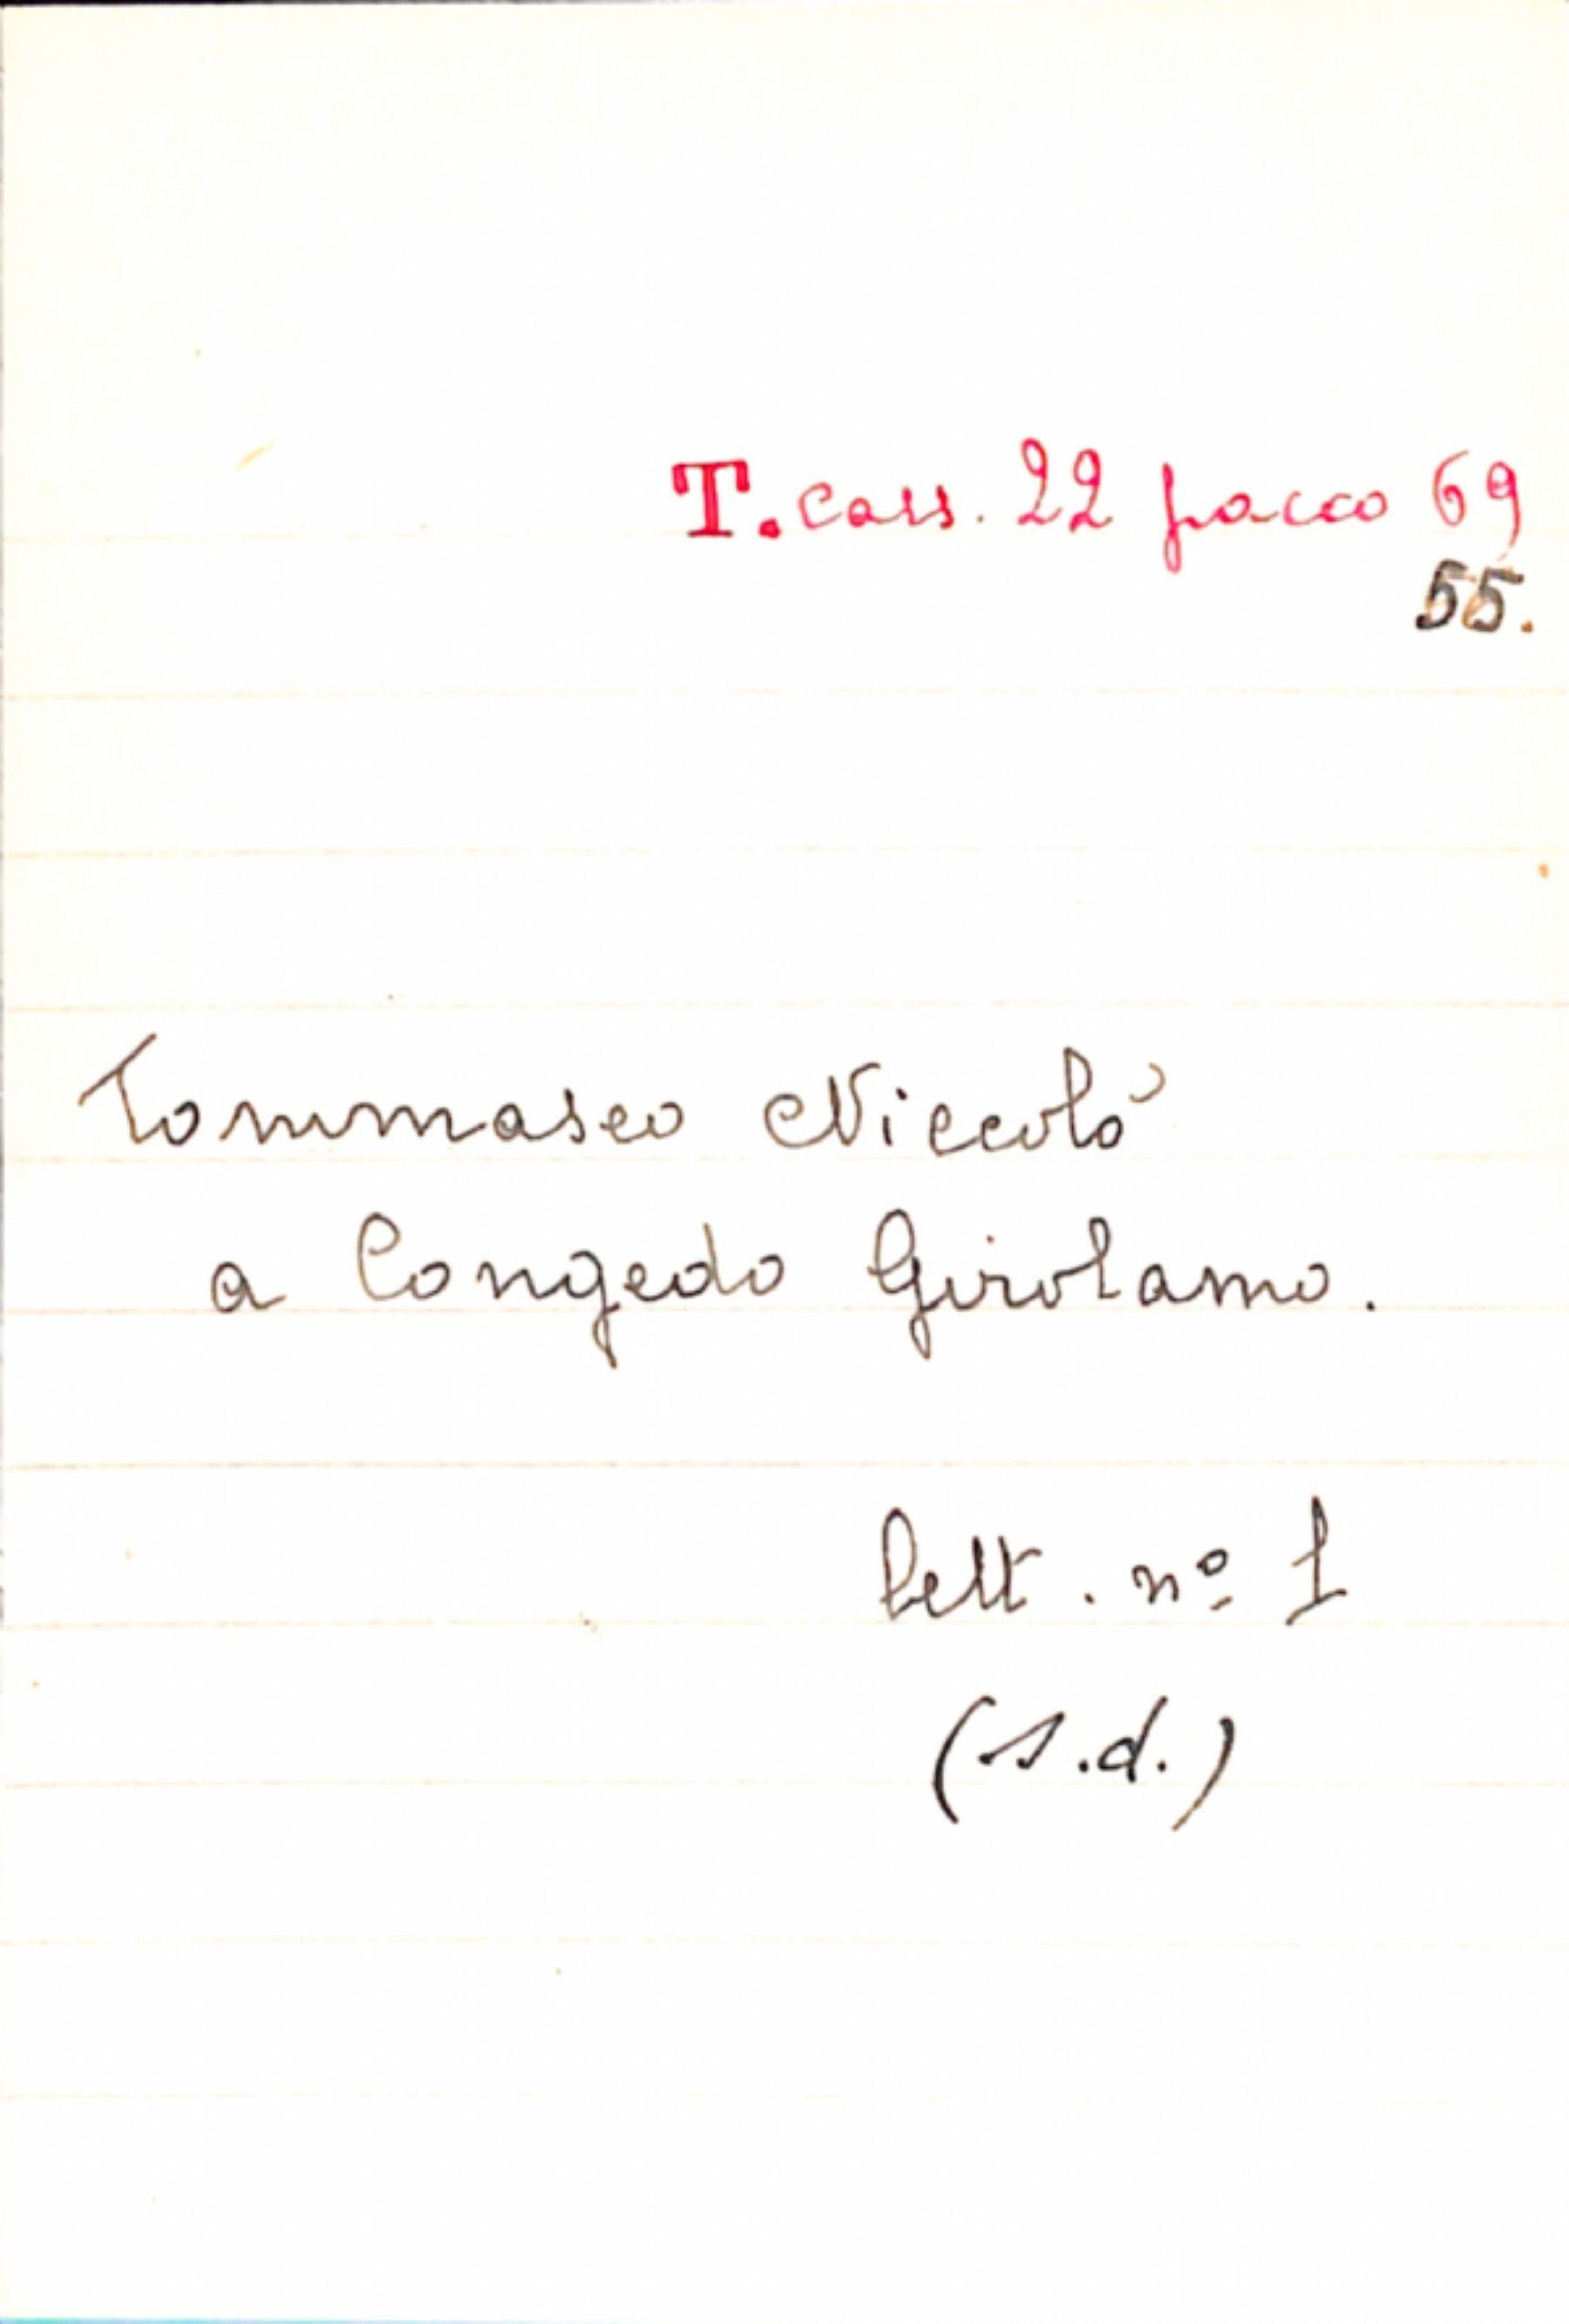 T. cass. 22 pacco 69
55.
Tommaseo Niccolò
a Congedo Girolamo.
Lett. nº 1
(s.d.)